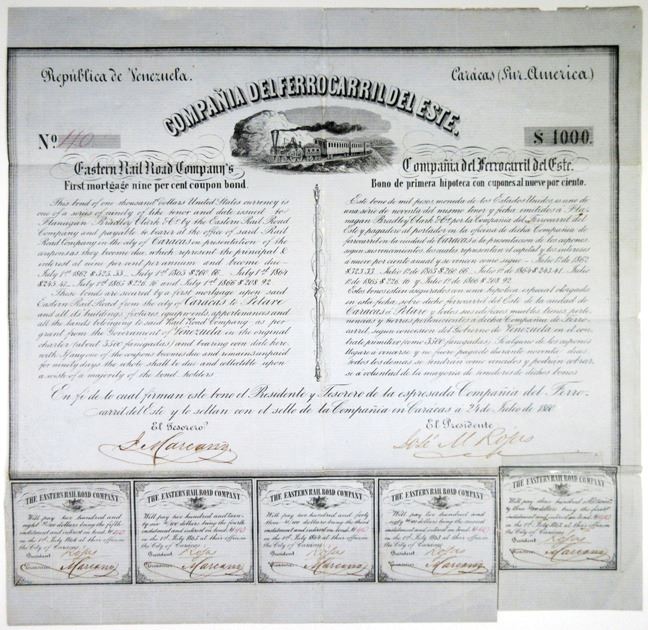 República de Venezuela.
Carácas (Sur. America)
COMPAÑIA DEL FERROCARRIL DEL ESTE.
Nº 110
$ 1000.
Eastern Rail Road Company's
First mortgage nine per cent coupon bond.
This bond of one thousand dollars United States currency is
one of a series of ninety of like tenor and date issued to
Flannagan Bradley Clark & Co by the Eastern Rail Road
Company and payable to bearer at the office of said Rail
Road Company in the city of Carácas on presentation of the
coupons as they become due which represent the principal &
interest at nine per cent per annum and become due
July 1st 1862 $ 323.33 July 1st 1863 $ 260.66 July 1st 1864
July 1st 1865 $ 226.16 and July 1st 1866 $ 208.92
These bonds are secured by a first mortgage upon said
Eastern Rail Road from the city of Carácas to Petare
and all its buildings, fixtures equipments, appertenances and
all the lands belonging to said Rail Road Company as per
grant from the Government of Venezuela in the original
charter (about 3500 fanegadas) and bearing even date here-
with. If any one of the coupons becomes due and remains unpaid
for ninety days the whole shall be due and collectible upon
a vote of a majority of the bond holders
Compañia del Ferrocarril del Este.
Bono de primera hipoteca con cupones al nueve por ciento.
Este bono de mil pesos moneda de los Estados Unidos, es uno de
una serie de noventa del mismo tenor y fecha emitidos á Fla-
nagan Bradley Clark & Co por la Compañia del Ferrocarril del
Este y pagadero al portador en la oficina de dicha Compañia de
ferrocarril en la ciudad de Carácas á la presentacion de los cupones
segun su vencimiento, los cuales representan el capital y los intereses
á nueve por ciento anual y se vencen como sigue - Julio 1º de 1862
$ 323.33 Julio 1º de 1863 $ 260.66 - Julio 1º de 1864 $ 243.41. Julio
1º de 1865 $ 226.16 y Julio 1º de 1866 $ 208.92
Estos bonos estan asegurados con una hipoteca especial otorgada
en esta fecha, sobre dicho ferrocarril del Este de la ciudad de
Carácas á Petare y todos sus edificios muebles bienes perte-
nencias y tierras pertenecientes á dicha Compañia de Ferro-
carril, segun concesion del Gobierno de Venezuela en el con-
trato primitivo (como 3500 fanegadas). Si alguno de los cupones
llegare á vencerse y no fuere pagado durante noventa dias
todos los demas se tendrán como vencidos y podrán cobrar-
se á voluntad de la mayoria de tenedores de dichos bonos
En fé de lo cual firman este bono el Presidente y Tesorero de la espresada Compañia del Ferro-
carril del Este y lo sellan con el sello de la Compañia en Carácas á 24 de Julio de 1860
El Tesorero
El Presidente
J. Marcano
José M Rójas
THE EASTERN RAIL ROAD COMPANY
Will pay two hundred and
eight 92/100 dollars being the fifth
instalment and interest on bond No
on the 1st July 1866 at their office in
the City of Carácas
President Rójas
Treasurer Marcano
THE EASTERN RAIL ROAD COMPANY
Will pay two hundred and twenty
six 16/100 dollars being the fourth
instalment and interest on bond No
on the 1st July 1865 at their office in
the City of Carácas
President Rójas
Treasurer Marcano
THE EASTERN RAIL ROAD COMPANY
Will pay two hundred and forty
three 41/100 dollars being the third
instalment and interest on bond No
on the 1st July 1864 at their office in
the City of Carácas
President Rójas
Treasurer Marcano
THE EASTERN RAIL ROAD COMPANY
Will pay two hundred and
sixty 66/100 dollars being the second
instalment and interest on bond No
on the 1st July 1863 at their office in
the City of Carácas
President Rójas
Treasurer Marcano
THE EASTERN RAIL ROAD COMPANY
Will pay three hundred
dollars being the first
instalment and interest on bond No
on the 1st July 1862 at their office in
the City of Carácas
President Rójas
Treasurer Marcano